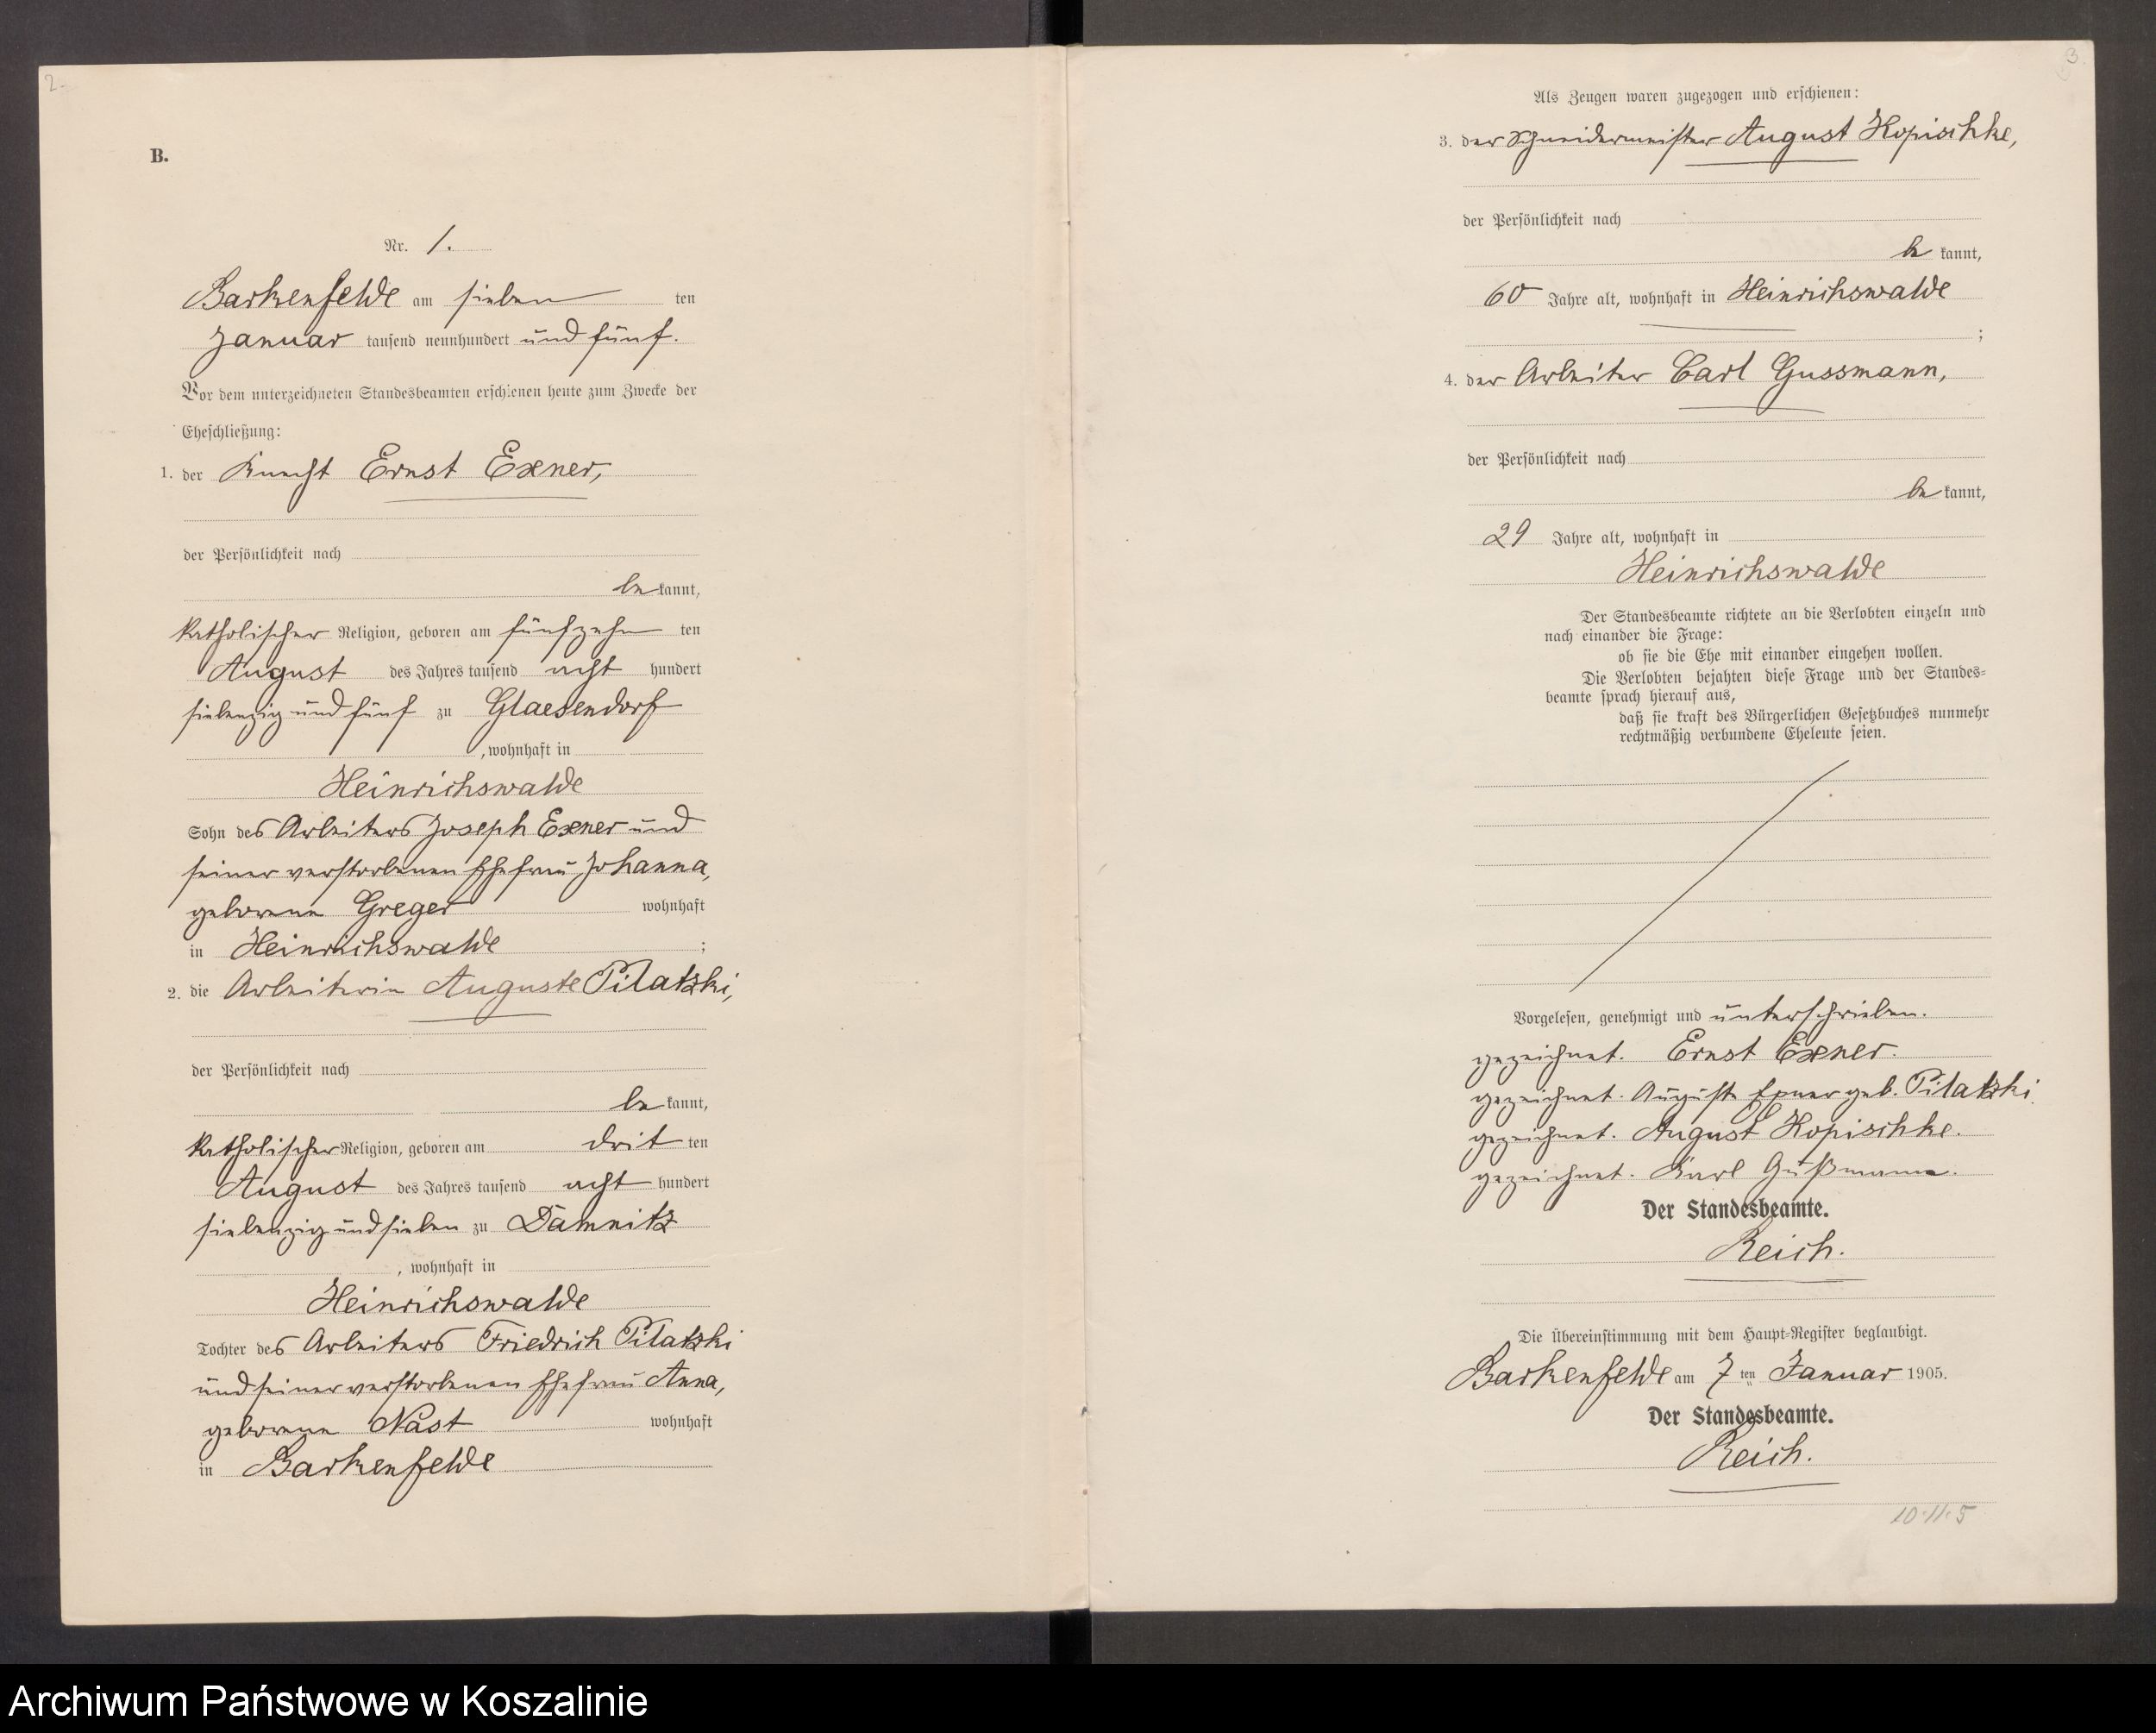 2.
B.
Nr. 1.
Barkenfelde am sieben ten
Januar tausend neunhundert und fünf.
Vor dem unterzeichneten Standesbeamten erschienen heute zum Zwecke der
Eheschließung:
1. der Knecht Ernst Exner,
der Persönlichkeit nach
be kannt,
katholischer Religion, geboren am fünfzehn ten
August des Jahres tausend acht hundert
siebenzig und fünf zu Glaesendorf
, wohnhaft in
Heinrichswalde
Sohn des Arbeiters Joseph Exner und
seiner verstorbenen Ehefrau Johanna,
geborene Greger wohnhaft
in Heinrichswalde ;
2. die Arbeiterin Auguste Pilatzki,
der Persönlichkeit nach
be kannt,
katholischer Religion, geboren am drit ten
August des Jahres tausend acht hundert
siebenzig und sieben zu Damnitz
, wohnhaft in
Heinrichswalde
Tochter des Arbeiters Friedrich Pilatzki
und seiner verstorbenen Ehefrau Anna,
geborene Nast wohnhaft
in Barkenfelde
3
Als Zeugen waren zugezogen und erschienen:
3. der Schneidermeister August Kopischke,
der Persönlichkeit nach
be kannt,
60 Jahre alt, wohnhaft in Heinrichswalde
;
4. der Arbeiter Carl Gussmann,
der Persönlichkeit nach
be kannt,
29 Jahre alt, wohnhaft in
Heinrichswalde
Der Standesbeamte richtete an die Verlobten einzeln und
nach einander die Frage:
ob sie die Ehe mit einander eingehen wollen.
Die Verlobten bejahten diese Frage und der Standes=
beamte sprach hierauf aus,
daß sie kraft des Bürgerlichen Gesetzbuches nunmehr
rechtmäßig verbundene Eheleute seien.
Vorgelesen, genehmigt und unterschrieben.
gezeichnet. Ernst Exner.
gezeichnet. Auguste Exner geb. Pilatzki.
gezeichnet. August Kopischke.
gezeichnet. Karl Gußmann.
Der Standesbeamte.
Reich.
Die Übereinstimmung mit dem Haupt=Register beglaubigt.
Barkenfelde am 7 ten Januar 1905.
Der Standesbeamte.
Reich.
10·11·5
Archiwum Państwowe w Koszalinie